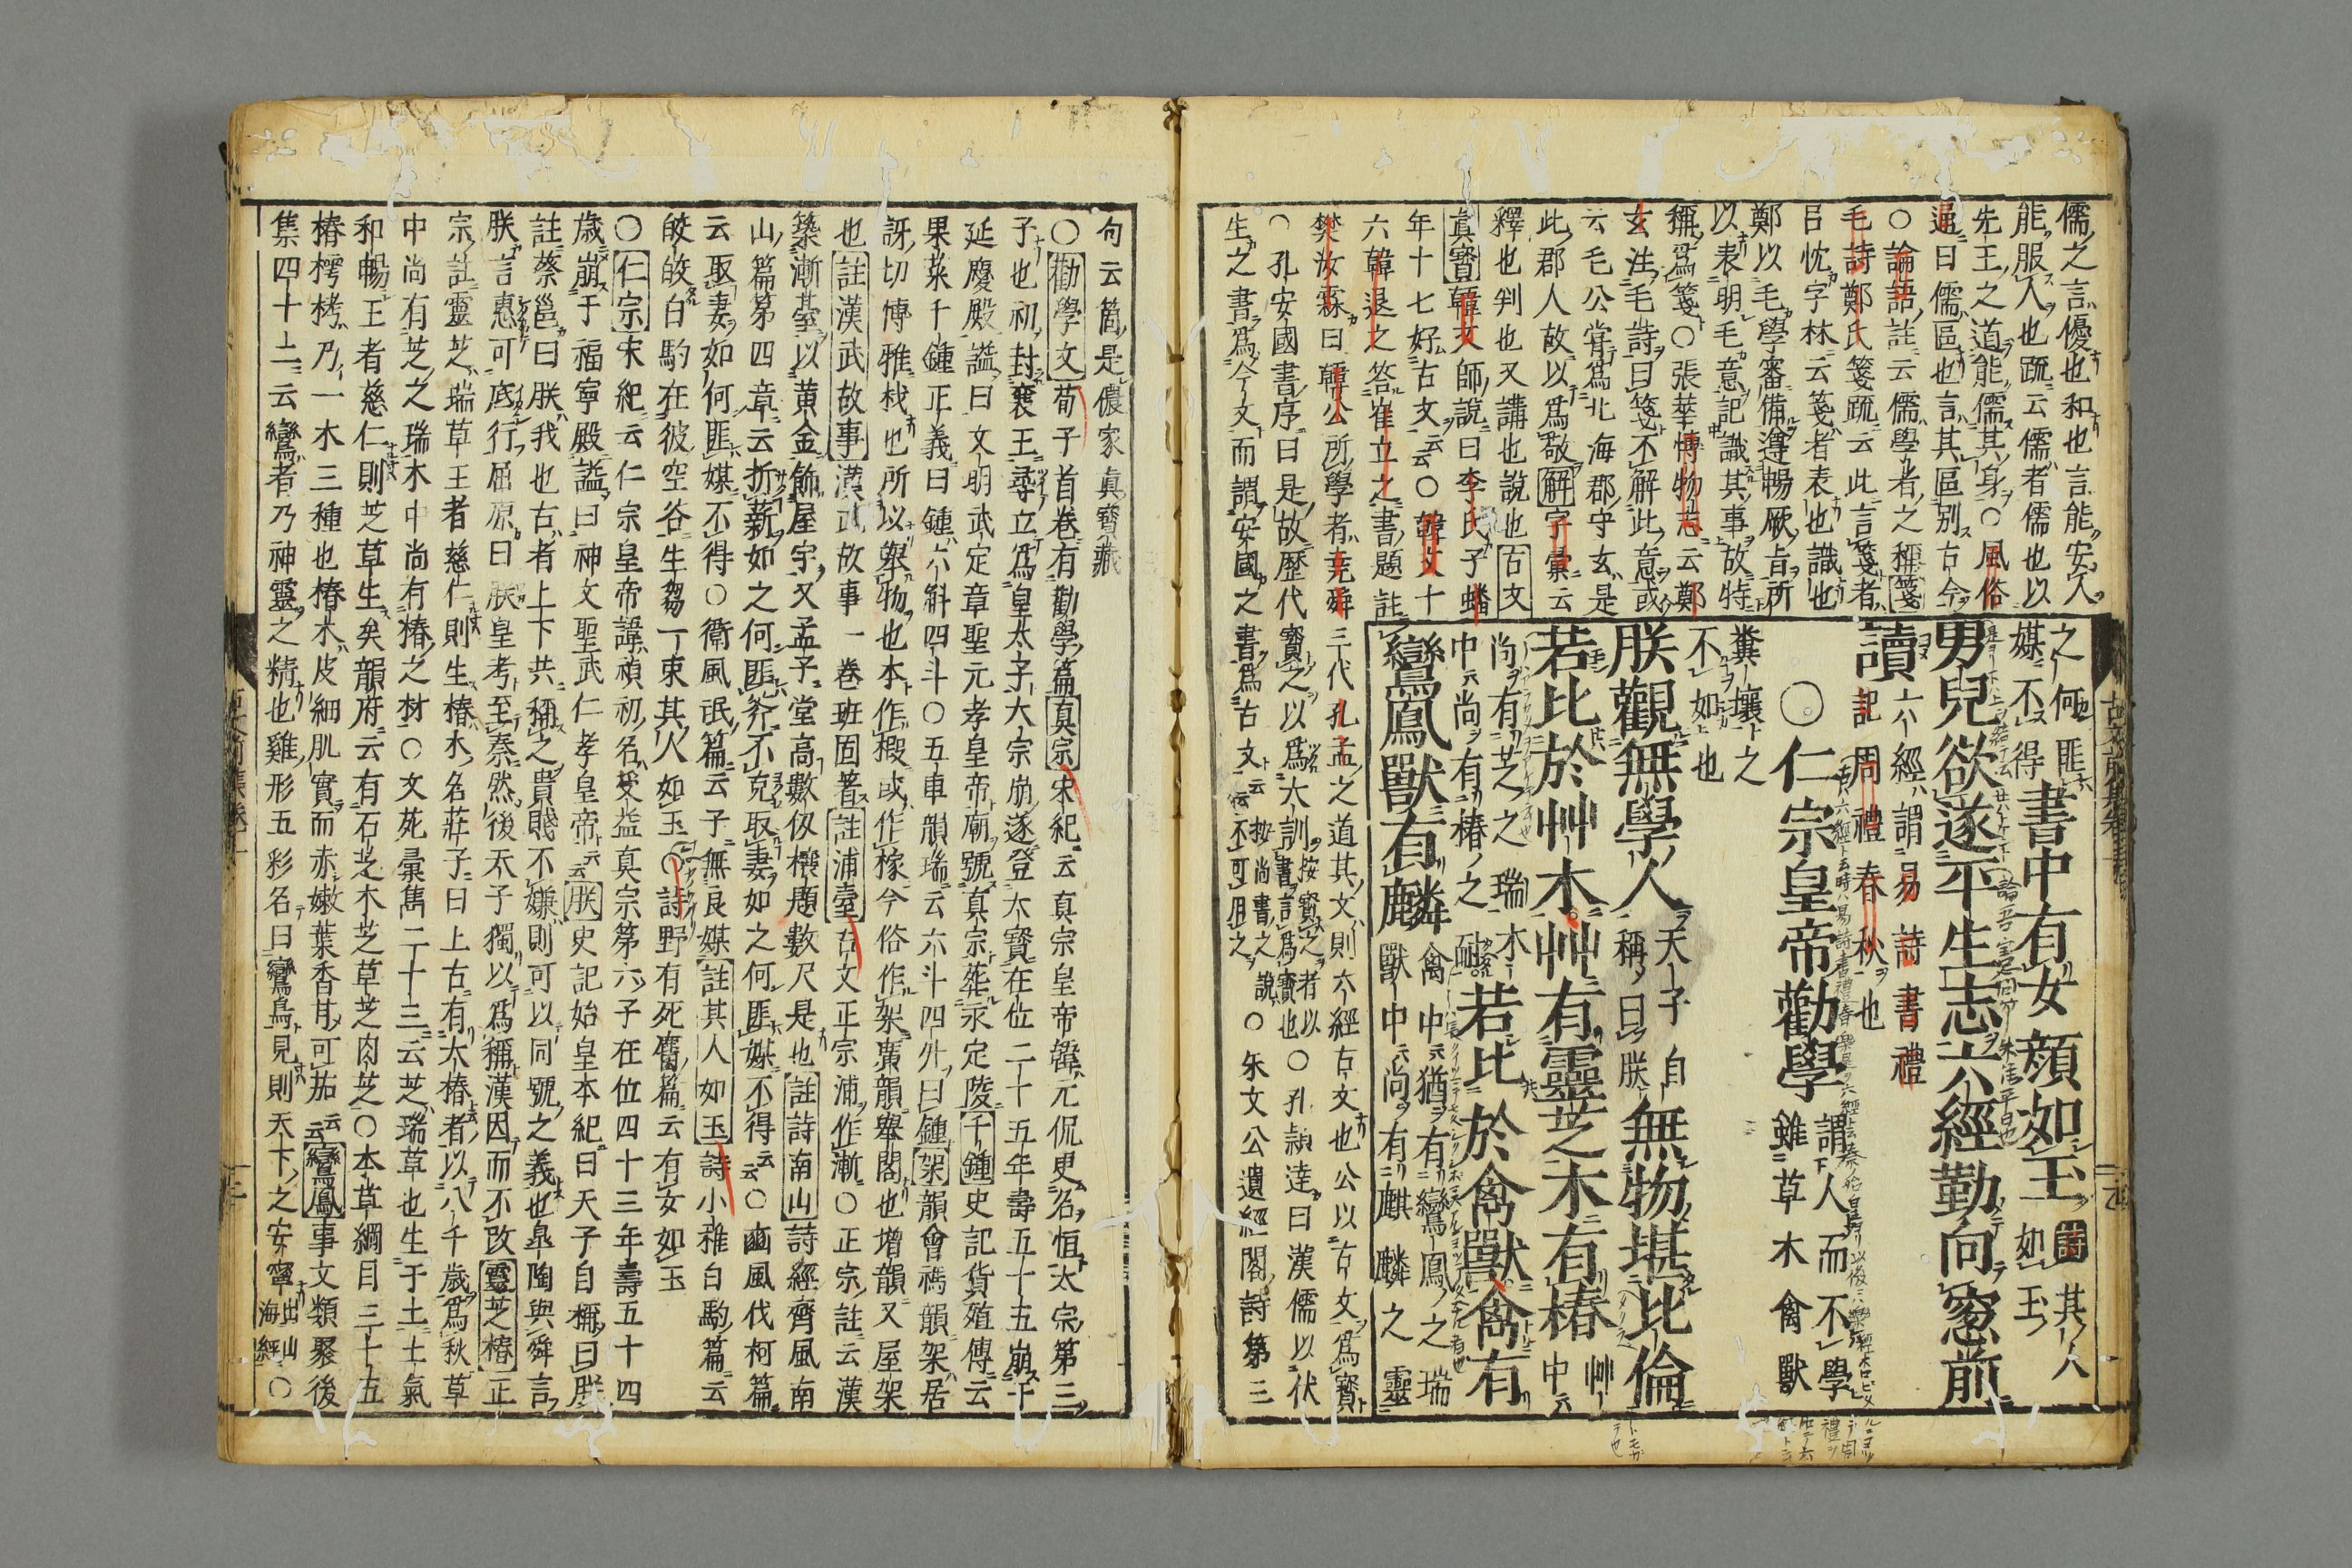 儒之言優也和也言能安人
能服人也疏云儒者濡也以
先王之道能濡其身○風俗
通曰儒區也言其區別古今
○論語註云儒學者之稱箋
毛詩鄭氏箋疏云此言箋者
呂忱字林云箋者表也識也
鄭以毛學審備遵暢厥旨所
以表明毛意記識其事故特
稱爲箋○張華博物志云鄭
玄注毛詩曰箋不解此意或
云毛公嘗爲北海郡守玄是
此郡人故以爲敬解字彙云
釋也判也又講也說也古文
眞寶韓文師說曰李氏子蟠
年十七好古文云云○韓文十
六韓退之答崔立之書題註
樊汝霖曰韓公所學者堯舜三代孔孟之道其文則六經古文也公以古文爲寶
○孔安國書序曰是故歷代寶之以爲大訓按寶之者以書言爲寶也○孔穎達曰漢儒以伏
生之書爲今文而謂安國之書爲古文云按尚書之說不可用之○朱文公遺經閣詩第三
之何匪
媒不得
書中有女顏如玉
如玉
其人
男兒欲遂平生志六經勤向窓前
讀
六經謂易詩書禮
記周禮春秋也
○仁宗皇帝勸學
謂人而不學
雖草木禽獸
糞壤之
不如也
朕觀無學人
天子自
稱曰朕
無物堪比倫
若比於艸木艸有靈芝木有椿
艸中
尚有芝之瑞木
中尚有椿之
若比於禽獸禽有
鸞鳳獸有麟
禽中猶有鸞鳳之瑞
獸中尚有麒麟之靈
句云箇是儂家眞寶藏
○勸學文荀子首卷有勸學篇真宗宋紀云真宗皇帝諱元侃更名恒太宗第三
子也初封襄王尋立爲皇太子太宗崩遂登大寶在位二十五年壽五十五崩于
延慶殿謚曰文明武定章聖元孝皇帝廟號真宗葬永定陵千鍾史記貨殖傳云
果菜千鍾正義曰鍾六斛四斗○五車韻瑞云六斗四升曰鍾架韻會禡韻架居
訝切博雅栈也所以舉物也本作椵或作榢今俗作架廣韻舉閣也增韻又屋架
也註漢武故事漢武故事一卷班固著註浦臺古文正宗浦作漸○正宗註云漢
築漸臺以黃金飾屋宇又孟子堂高數仭榱題數尺是也註詩南山詩經齊風南
山篇第四章云折薪如之何匪斧不克取妻如之何匪媒不得云云○豳風伐柯篇
云取妻如何匪媒不得○衞風氓篇云子無良媒註其人如玉詩小雅白駒篇云
皎皎白駒在彼空谷生芻一束其人如玉○詩野有死麕篇云有女如玉
○仁宗宋紀云仁宗皇帝諱禎初名受益真宗第六子在位四十三年壽五十四
歲崩于福寧殿謚曰神文聖武仁孝皇帝云朕史記始皇本紀曰天子自稱曰朕
註蔡邕曰朕我也古者上下共稱之貴賤不嫌則可以同號之義也皐陶與舜言
朕言惠可底行屈原曰朕皇考至秦然後天子獨以爲稱漢因而不改靈芝椿正
宗註靈芝瑞草王者慈仁則生椿木名莊子曰上古有大椿者以八千歲爲秋草
中尚有芝之瑞木中尚有椿之材○文苑彙雋二十三云芝瑞草也生于土土氣
和暢王者慈仁則芝草生矣韻府云有石芝木芝草芝肉芝○本草綱目三十五
椿樗栲乃一木三種也椿木皮細肌實而赤嫩葉香甘可茹云云鸞鳳事文類聚後
集四十二云鸞者乃神靈之精也雞形五彩名曰鸞鳥見則天下之安寧出山海經○